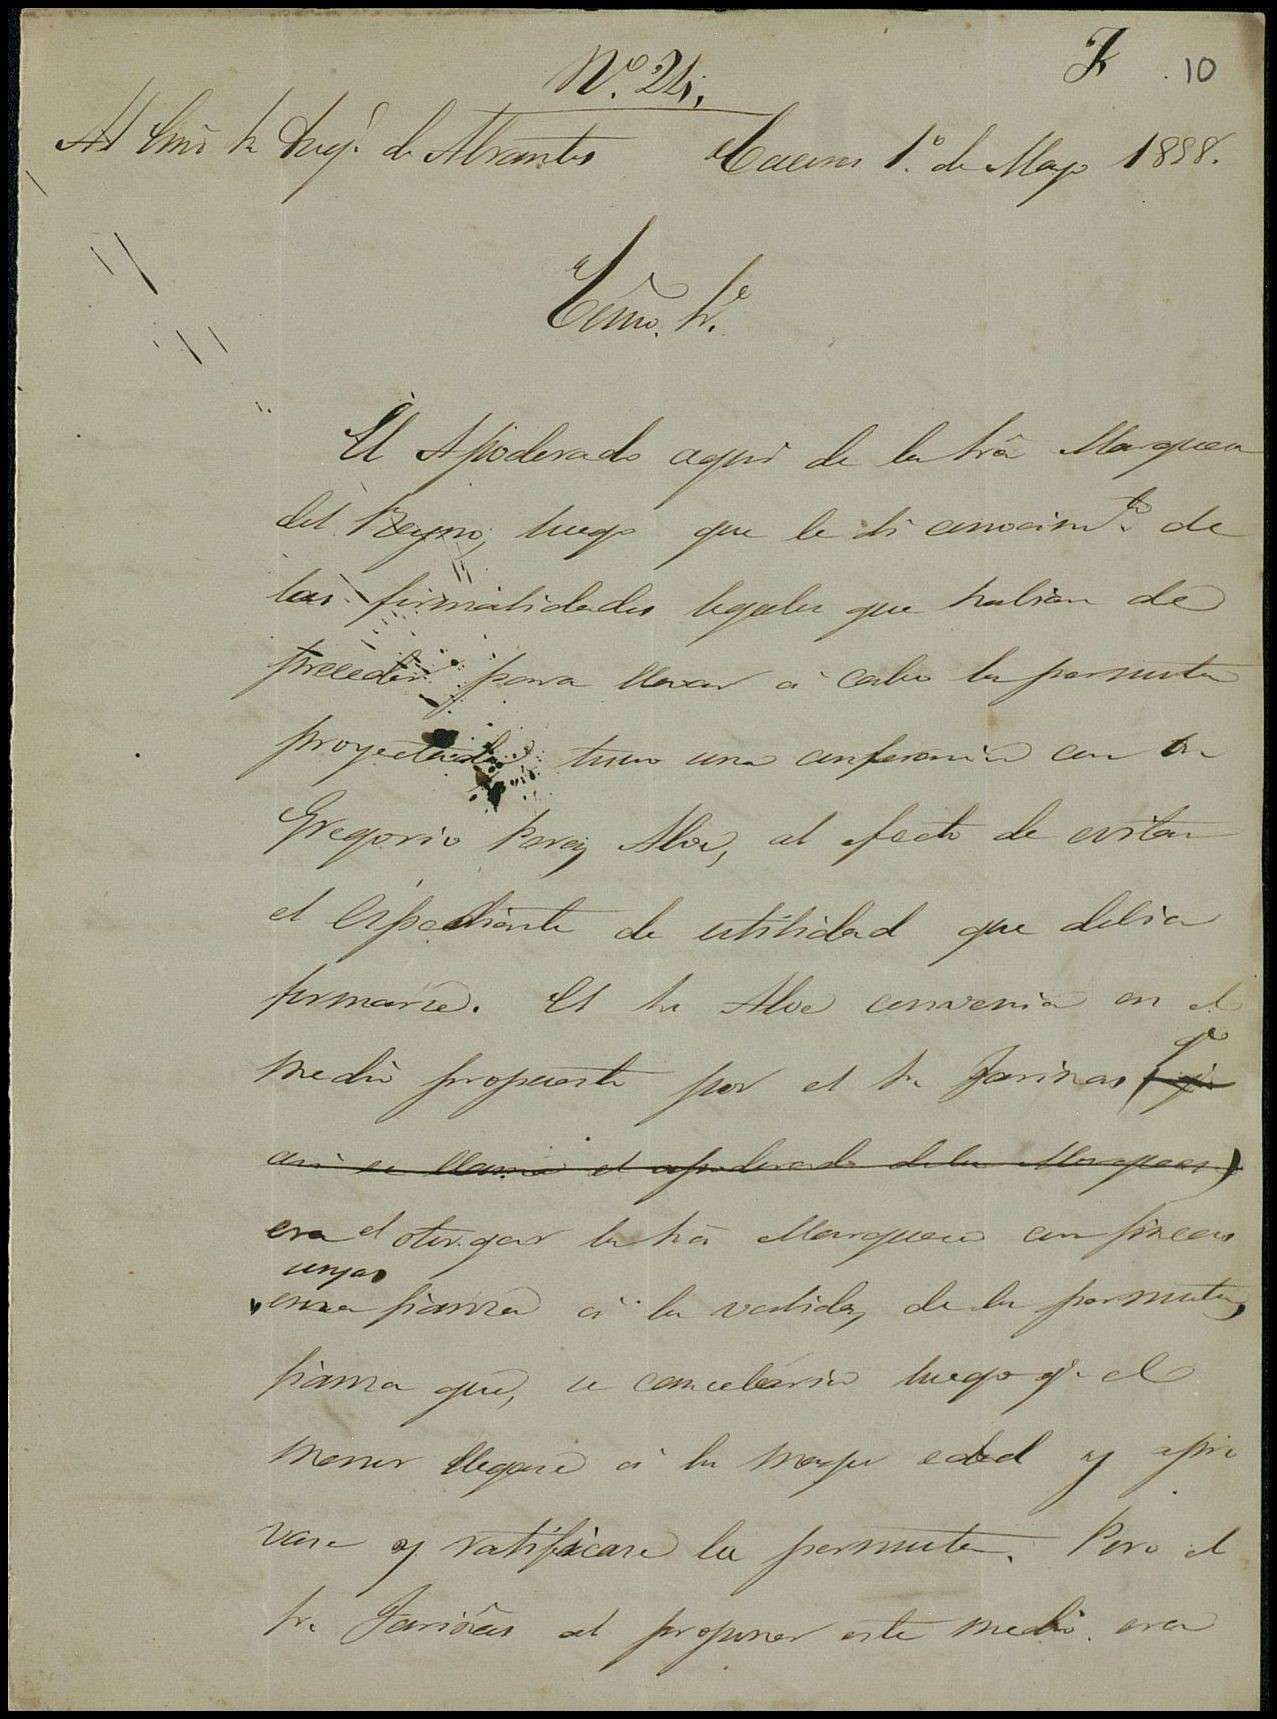 Nº. 24.
F. 10
Al Exmo Sr Duqe. de Abrantes Caceres 1º. de Mayo 1898.
Exmo. Sr.
El Apoderado aqui de la Srā Marquesa
del Reyno, luego que le di conocimto. de
las formalidades legales que habian de
preceder para llevar á cabo la permuta
proyectada tuvo una conferencia con Dn
Gregorio Perez Aloe, al efecto de evitar
el espediente de utilidad que debia
formarse. El Sr Aloe convenia en el
medio propuesto por el Sr Fariñas, (que
asi se llama el apoderado de la Marquesa)
era el otorgar la Srā Marquesa con fincas
suyas
una fianza á la validez de la permuta,
fianza que, se cancelaria luego qe. el
menor llegase á la mayor edad y apro
vase y ratificase la permuta. Pero el
Sr. Fariñas al proponer este medio era